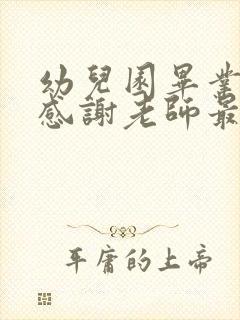 幼兒園畢業
感謝老師最
平庸的上帝